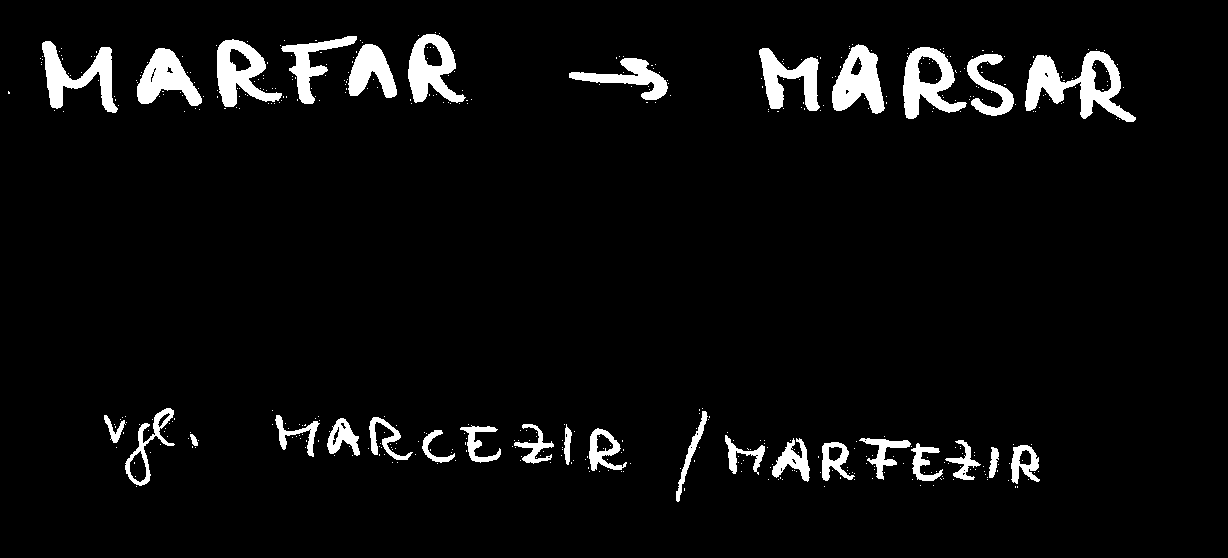 MARFAR → MARSAR
vgl. MARCEZIR / MARFEZIR